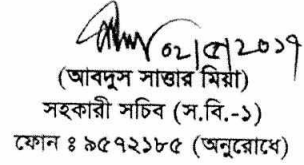 ০২/৫/২০১৭
(আবদুস সাত্তার মিয়া)
সহকারী সচিব (স.বি.-১)
ফোন ঃ ৯৫৭২১৮৫ (অনুরোধে)